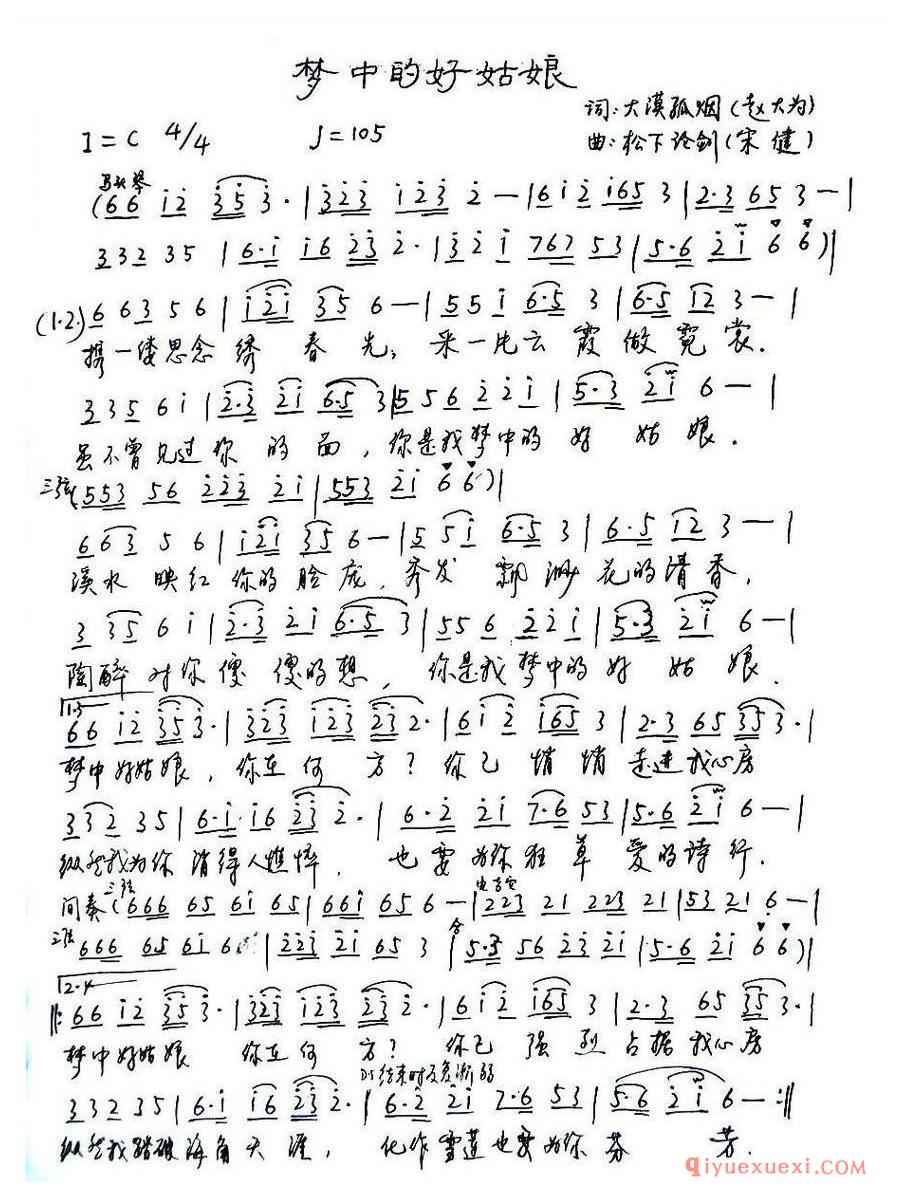 梦中的好姑娘
词:大漠孤烟(赵大为)
1=C 4/4 ♩=105
曲:松下论剑(宋健)
马头琴
(66 i2 35 3·|323 123 2—|6i2 i65 3|2·3 65 3—|
332 35|6·i i6 23 2·|32 i 767 53|5·6 2i 6 6)|
(1.2.) 6 63 5 6|i2i 35 6—|55 i 6·5 3|6·5 i2 3—|
携一缕思念绣 春 光; 采一片云 霞做霓裳.
335 6i|2·3 2i 6·5 3|55 6 2 2 i|5·3 2i 6—|
虽不曾见过你 的 面,你是我梦中的 好 姑 娘.
三弦(553 56 223 2i|553 2i 6 6)|
663 5 6|i2i 35 6—|5 5i 6·5 3|6·5 i2 3—|
溪水 映红你的脸庞, 秀发 飘渺花的清香,
3 35 6 i|2·3 2i 6·5 3|55 6 2 2 i|5·3 2i 6—|
陶醉 对你傻傻的想, 你是我梦中的 好 姑 娘.
1.3
66 i2 35 3·|323 i23 23 2·|6i 2 i65 3|2·3 65 35 3·|
梦中好姑娘,你在何 方?你已 悄 悄 走进我心房
332 35|6·i·i6 23 2·|6·2 2i 7·6 53|5·6 2i 6—|
纵然我为你 消得人憔悴, 也要为你狂草 爱的诗行.
三弦
电吉它
间奏(666 65 6i 65|66i 65 6—|223 21 223 21|53 21 6—|
合
三弦666 65 6i 6|223 2i 65 3|5·3 56 23 2i|5·6 2i 6 6)|
2.4
‖:66 i2 35 3·|323 i23 23 2·|6i2 i65 3|2·3 65 35 3·|
梦中好姑娘 你在何 方? 你已 强 烈 占据我心房
332 35|6·i i6 23 2·|6·2 2i 7·6 53|5·6 2i 6—:‖
纵然我踏破海角天涯, 化作雪莲也要为你芬 芳.
qiyuexuexi.com